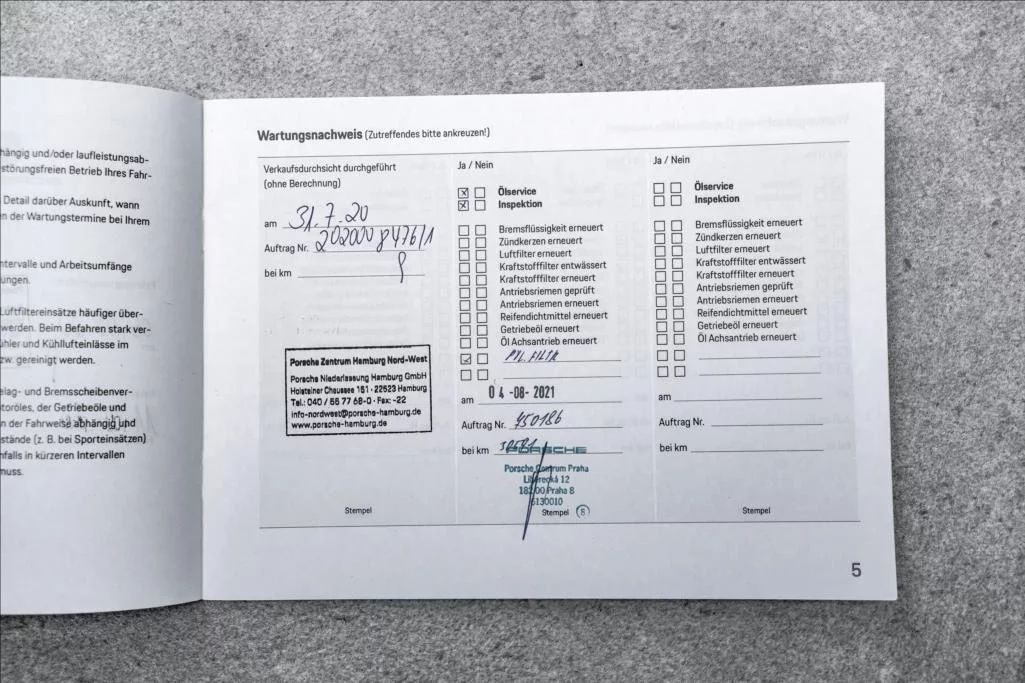 hängig und/oder laufleistungsab-
störungsfreien Betrieb Ihres Fahr-
Detail darüber Auskunft, wann
n der Wartungstermine bei Ihrem
ntervalle und Arbeitsumfänge
ungen.
Luftfiltereinsätze häufiger über-
werden. Beim Befahren stark ver-
ühler und Kühllufteinlässe im
zw. gereinigt werden.
elag- und Bremsscheibenver-
otoröles, der Getriebeöle und
n der Fahrweise abhängig und
stände (z. B. bei Sporteinsätzen)
nfalls in kürzeren Intervallen
nuss.
Wartungsnachweis (Zutreffendes bitte ankreuzen!)
Verkaufsdurchsicht durchgeführt
(ohne Berechnung)
am 31.7.20
Auftrag Nr. 2020008476/1
bei km
Porsche Zentrum Hamburg Nord-West
Porsche Niederlassung Hamburg GmbH
Holsteiner Chaussee 151 · 22523 Hamburg
Tel.: 040 / 55 77 68-0 · Fax: -22
info-nordwest@porsche-hamburg.de
www.porsche-hamburg.de
Stempel
Ja / Nein
Ölservice
Inspektion
Bremsflüssigkeit erneuert
Zündkerzen erneuert
Luftfilter erneuert
Kraftstofffilter entwässert
Kraftstofffilter erneuert
Antriebsriemen geprüft
Antriebsriemen erneuert
Reifendichtmittel erneuert
Getriebeöl erneuert
Öl Achsantrieb erneuert
PYL. FILTR
am 04-08-2021
Auftrag Nr. 450186
bei km
PORSCHE
Porsche Centrum Praha
Liberecká 12
182 00 Praha 8
6130010
Stempel 8
Ja / Nein
Ölservice
Inspektion
Bremsflüssigkeit erneuert
Zündkerzen erneuert
Luftfilter erneuert
Kraftstofffilter entwässert
Kraftstofffilter erneuert
Antriebsriemen geprüft
Antriebsriemen erneuert
Reifendichtmittel erneuert
Getriebeöl erneuert
Öl Achsantrieb erneuert
am
Auftrag Nr.
bei km
Stempel
5